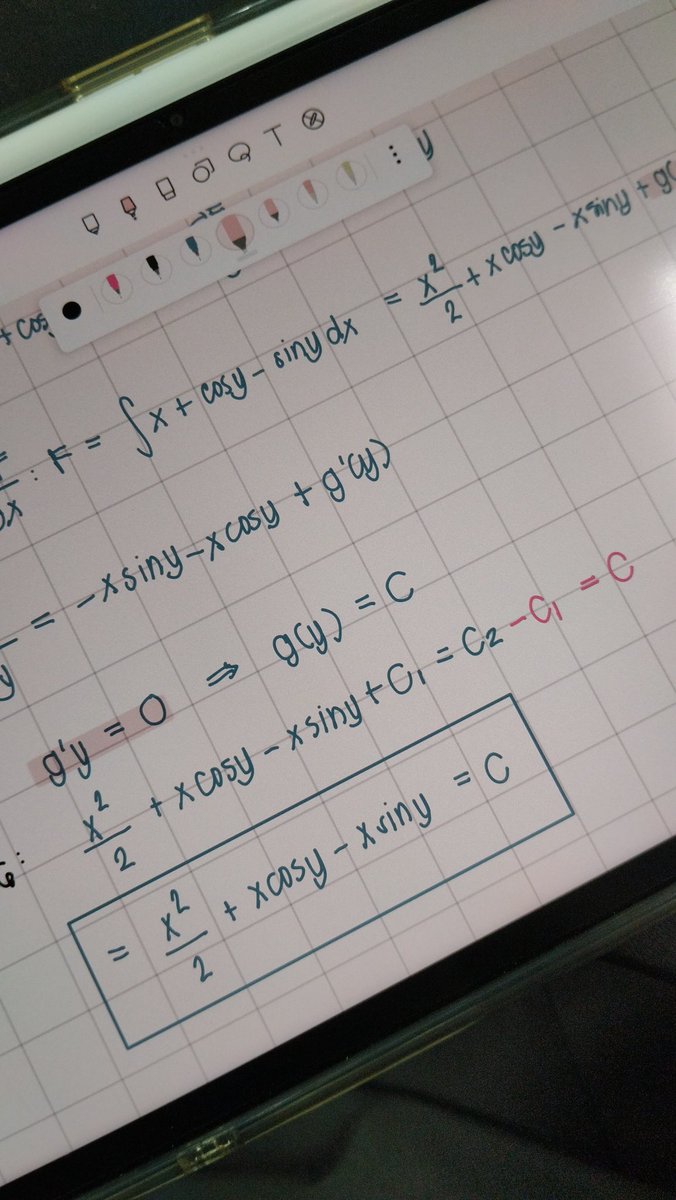 T
y
+ cos
: F = ∫ x + cosy - siny dx = x²/2 + xcosy - xsiny + g(
= -xsiny - xcosy + g'(y)
g'y = 0 ⇒ g(y) = C
x²/2 + xcosy - xsiny + C₁ = C₂ - C₁ = C
= x²/2 + xcosy - xsiny = C